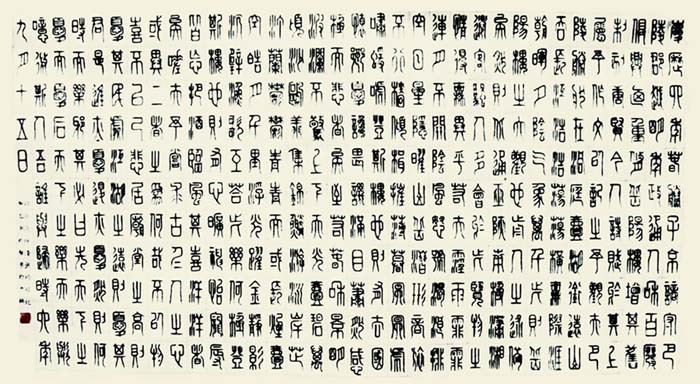 慶曆四年春滕子京謫守巴
陵郡越明年政通人和百廢
俱興乃重修岳陽樓增其舊
制刻唐賢今人詩賦於其上
屬予作文以記之予觀夫巴
陵勝狀在洞庭一湖銜遠山
吞長江浩浩湯湯橫無際涯
朝暉夕陰氣象萬千此則岳
陽樓之大觀也前人之述備
矣然則北通巫峽南極瀟湘
遷客騷人多會於此覽物之
情得無異乎若夫霪雨霏霏
連月不開陰風怒號濁浪排
空日星隱曜山岳潛形商旅
不行檣傾楫摧薄暮冥冥虎
嘯猿啼登斯樓也則有去國
懷鄉憂讒畏譏滿目蕭然感
極而悲者矣至若春和景明
波瀾不驚上下天光一碧萬
頃沙鷗翔集錦鱗游泳岸芷
汀蘭郁郁青青而或長煙一
空皓月千里浮光躍金靜影
沉璧漁歌互答此樂何極登
斯樓也則有心曠神怡寵辱
皆忘把酒臨風其喜洋洋者
矣嗟夫予嘗求古仁人之心
或異二者之為何哉不以物
喜不以己悲居廟堂之高則
憂其民處江湖之遠則憂其
君是進亦憂退亦憂然則何
時而樂耶其必曰先天下之
憂而憂後天下之樂而樂歟
噫微斯人吾誰與歸時六年
九月十五日